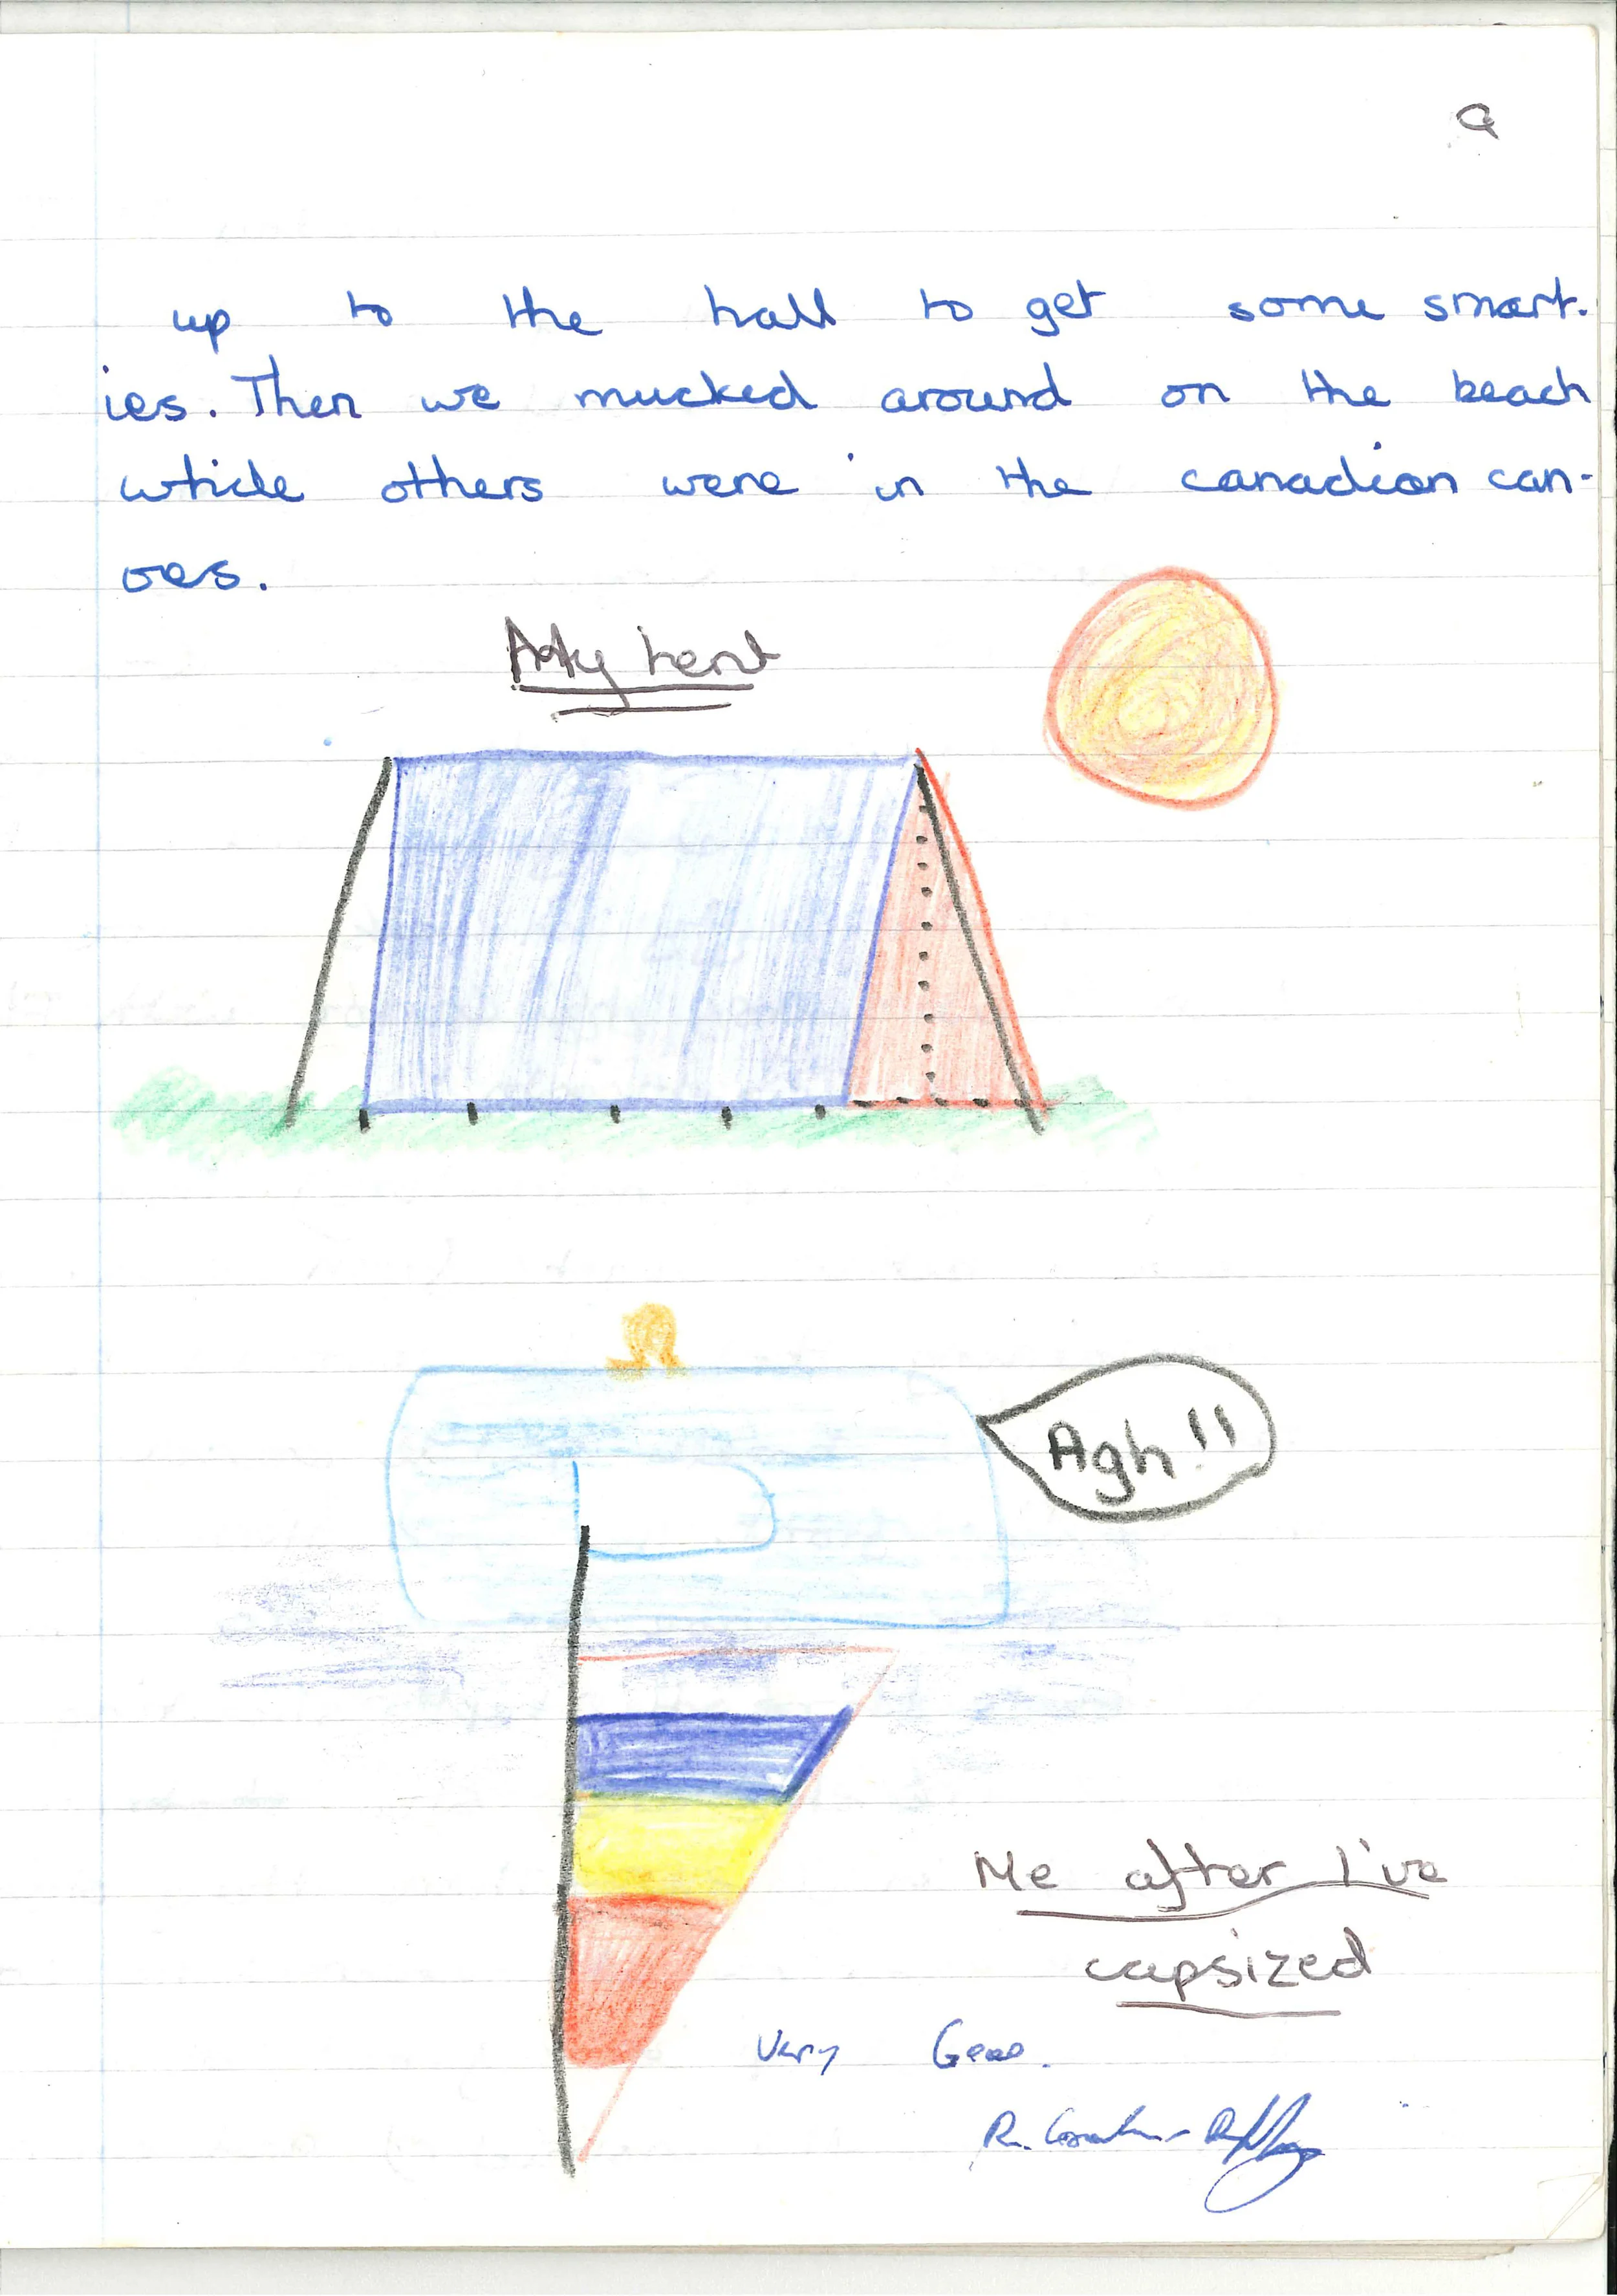 9
up to the hall to get some smart-
ies. Then we mucked around on the beach
while others were in the canadian can-
oes.
My tent
Agh!!
Me after I've
capsized
Very Good.
R.